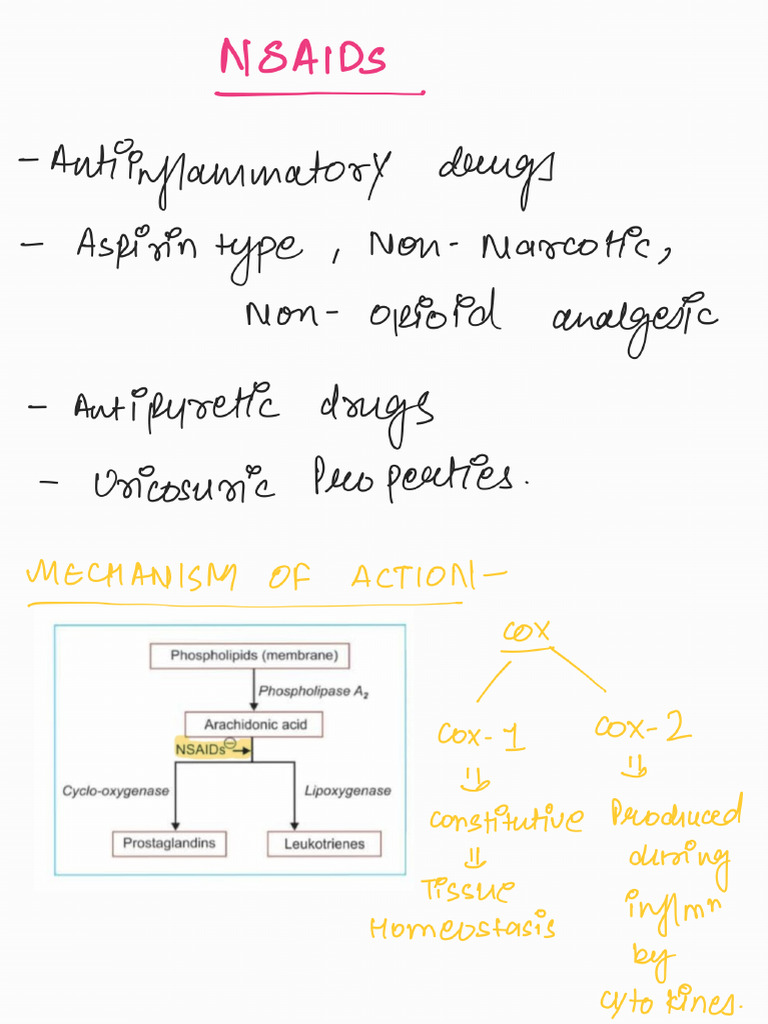 NSAIDs
- Antiinflammatory drugs
- Aspirin type, Non-Narcotic,
Non-opioid analgesic
- Antipyretic drugs
- Uricosuric Properties.
MECHANISM OF ACTION-
Phospholipids (membrane)
Phospholipase A₂
Arachidonic acid
NSAIDs⊖→
Cyclo-oxygenase
Lipoxygenase
Prostaglandins
Leukotrienes
COX
COX-1
⇓
Constitutive
⇓
Tissue
Homeostasis
COX-2
⇓
Produced
during
inflmⁿ
by
cytokines.